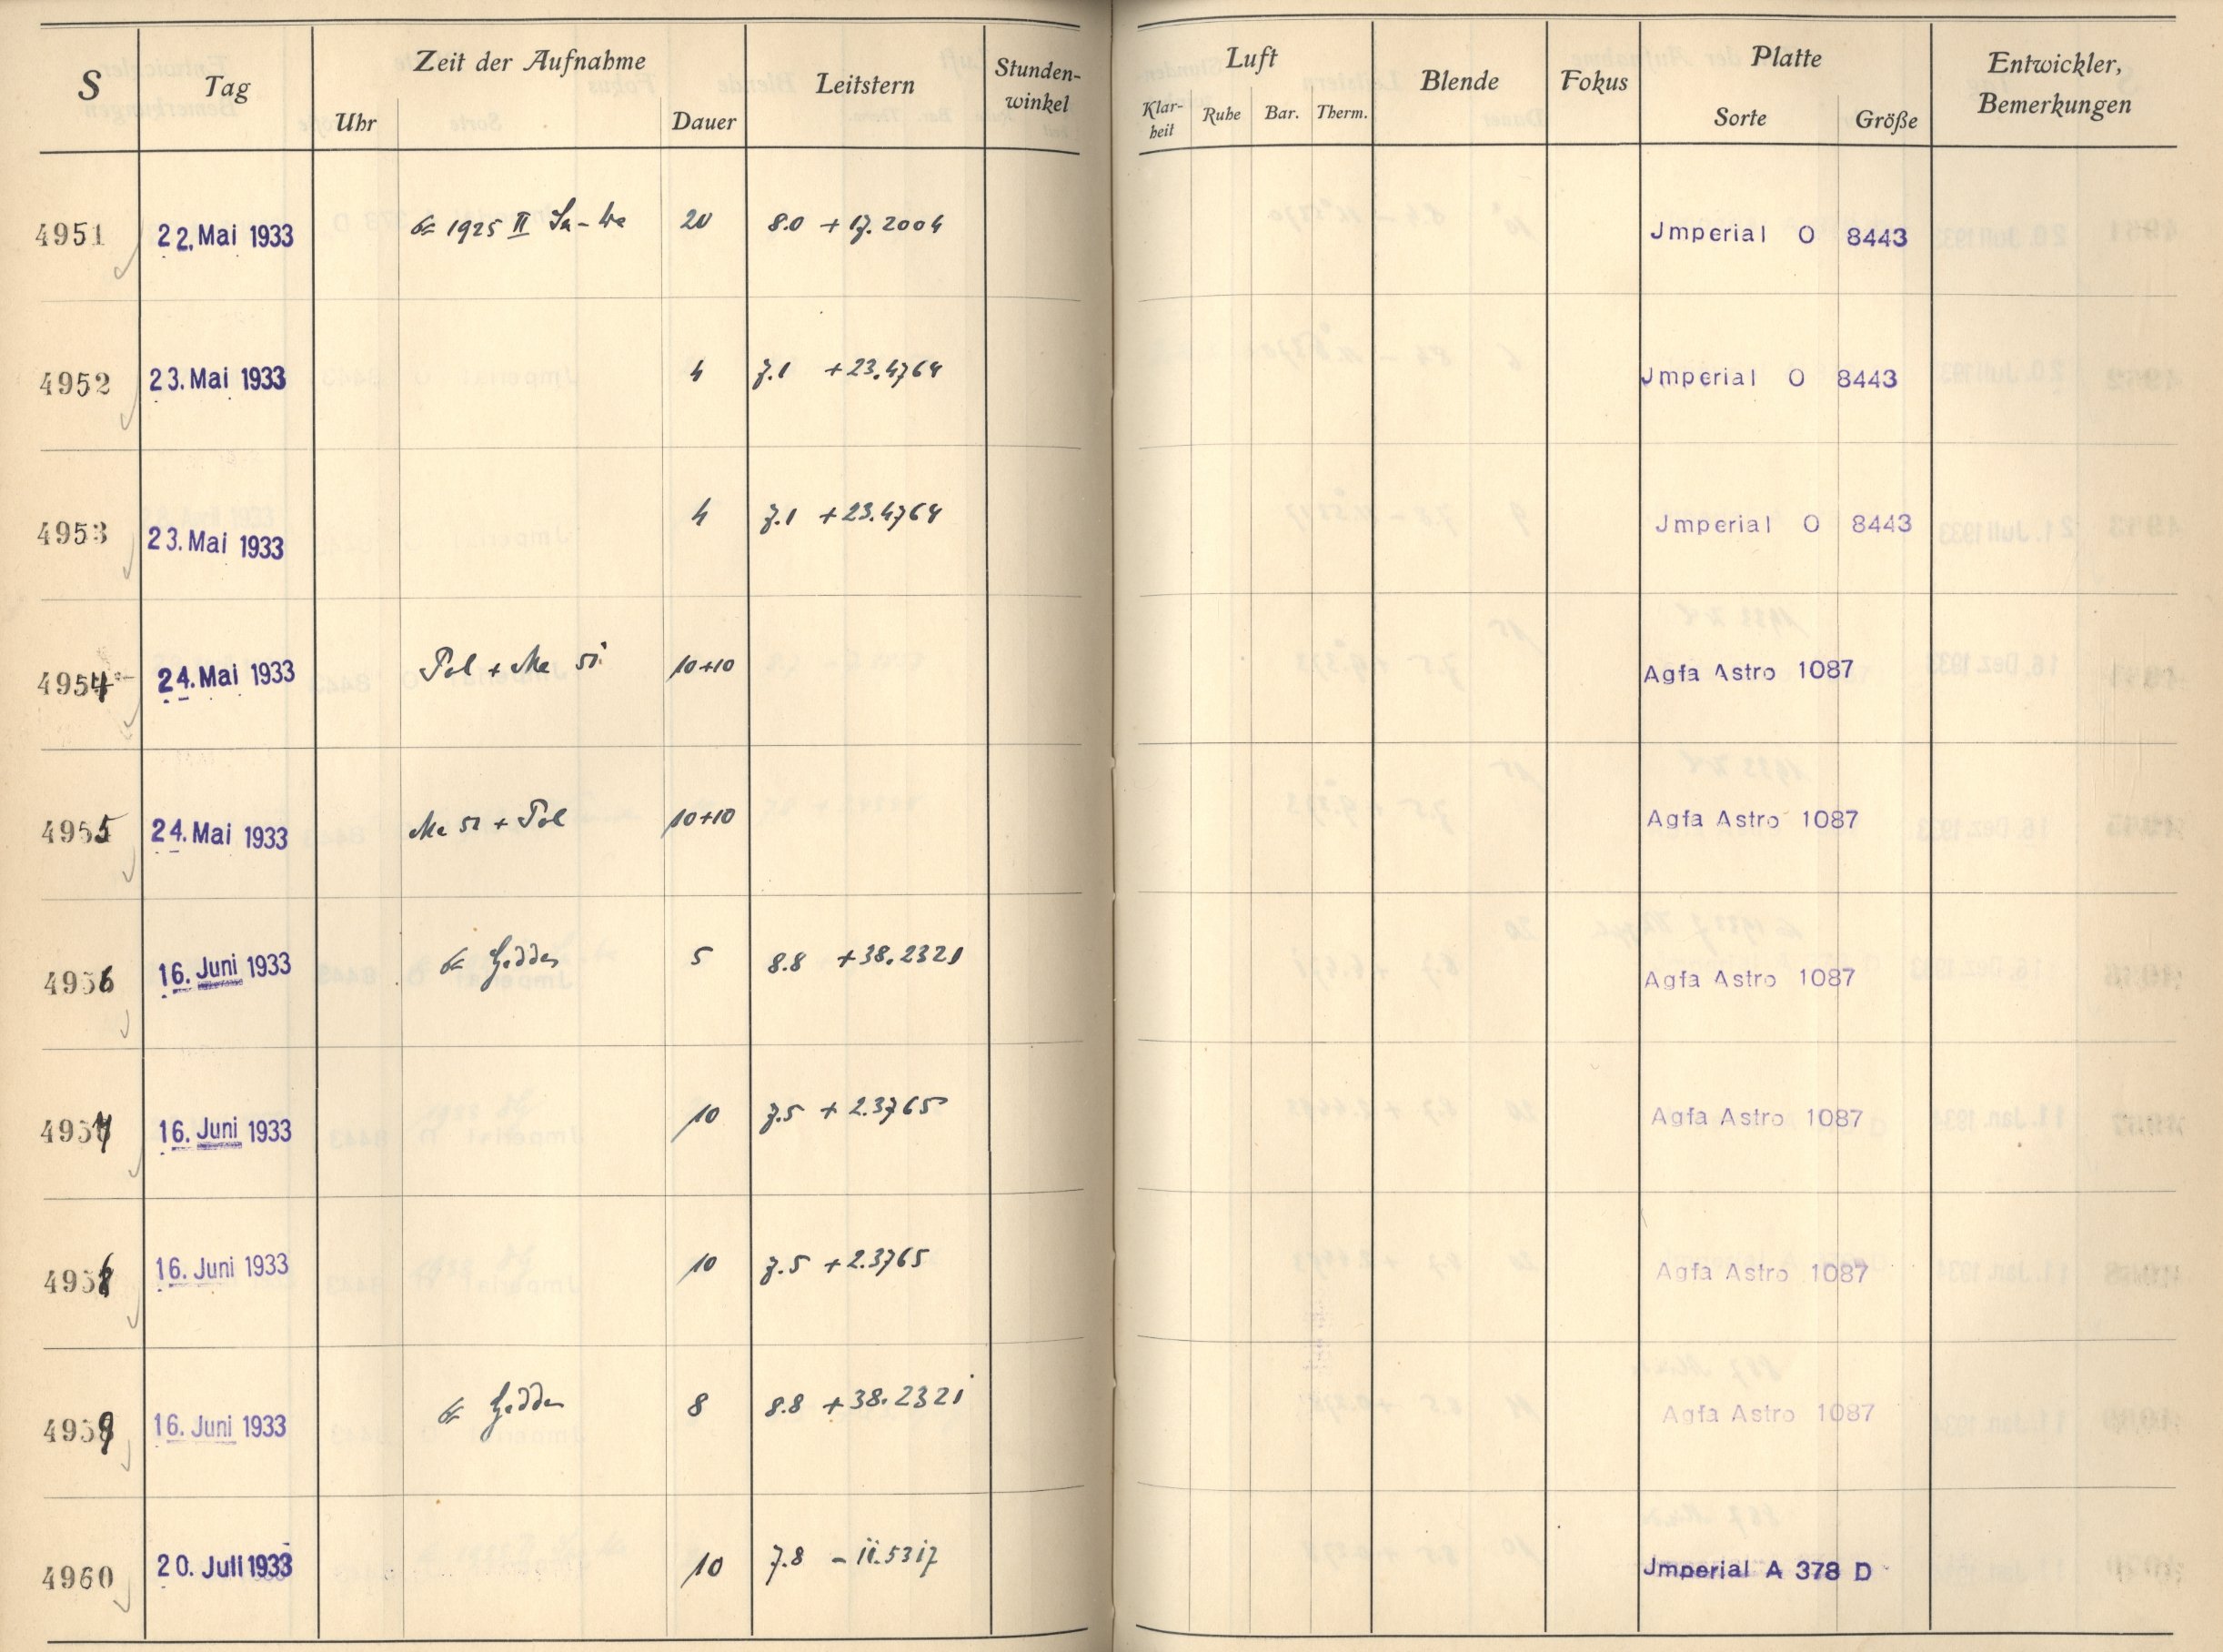 S Tag Zeit der Aufnahme Leitstern Stunden-winkel Luft Blende Fokus Platte Entwickler, Bemerkungen
Uhr Dauer Klar-heit Ruhe Bar. Therm. Sorte Größe
4951 22. Mai 1933 1925 II 20 8.0 +17.2004 Jmperial O 8443
4952 23. Mai 1933 4 7.1 +23.4764 Jmperial O 8443
4953 23. Mai 1933 4 7.1 +23.4764 Jmperial O 8443
4954 24. Mai 1933 Pol + Me si 10+10 Agfa Astro 1087
4955 24. Mai 1933 Me si + Pol 10+10 Agfa Astro 1087
4956 16. Juni 1933 5 8.8 +38.2321 Agfa Astro 1087
4957 16. Juni 1933 10 7.5 +2.3765 Agfa Astro 1087
4958 16. Juni 1933 10 7.5 +2.3765 Agfa Astro 1087
4959 16. Juni 1933 8 8.8 +38.2321 Agfa Astro 1087
4960 20. Juli 1933 10 7.8 -11.5317 Jmperial A 378 D